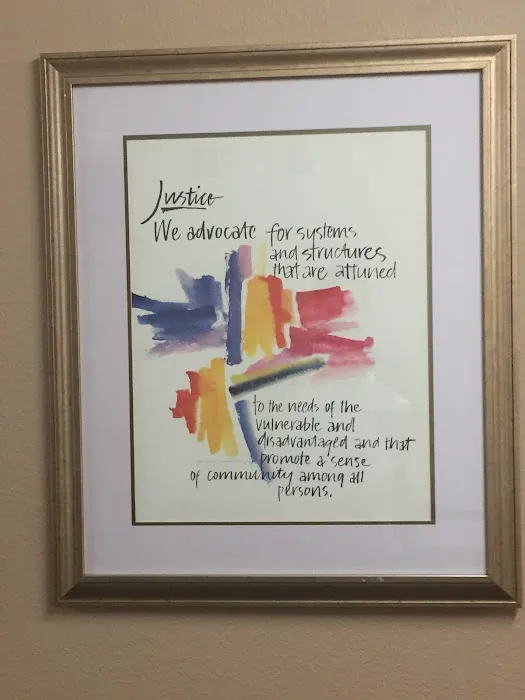 Justice
We advocate for systems
and structures
that are attuned
to the needs of the
vulnerable and
disadvantaged and that
promote a sense
of community among all
persons.